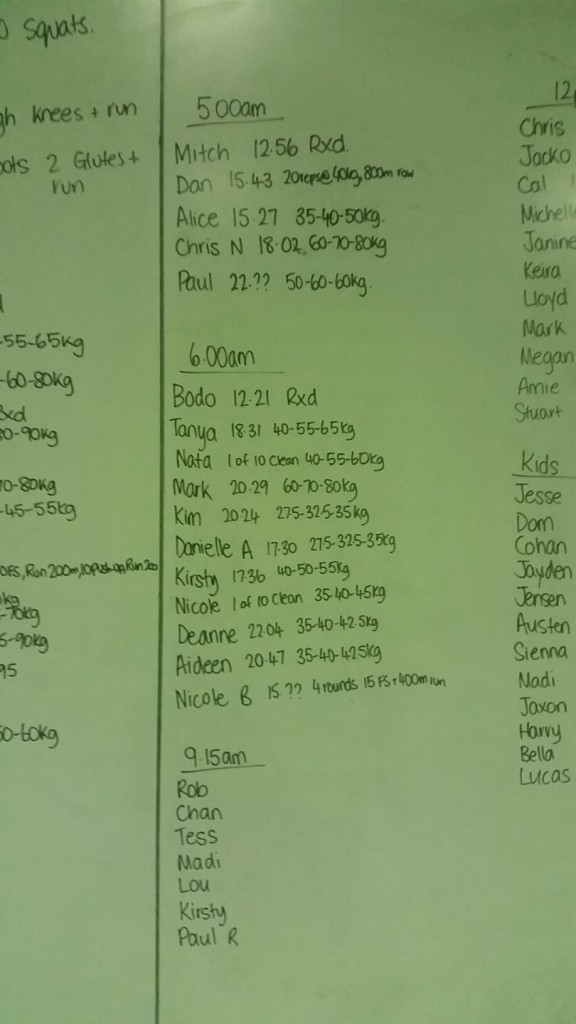 Squats.
knees + run
2 Glutes +
run
-55-65kg
-60-80kg
0-90kg
70-80kg
-45-55kg
Run 200m, 10 Push up, Run 200
kg
-70kg
5-90kg
95
50-60kg
5.00am
Mitch 12.56 Rxd.
Dan 15.43 20reps@40kg, 800m row
Alice 15.27 35-40-50kg.
Chris N 18.02. 60-70-80kg
Paul 22.?? 50-60-60kg.
6.00am
Bodo 12.21 Rxd
Tanya 18.31 40-55-65kg
Nata 1 of 10 Clean 40-55-60kg
Mark 20.29 60-70-80kg
Kim 20.24 27.5-32.5-35kg
Danielle A 17.30 27.5-32.5-35kg
Kirsty 17.36 40-50-55kg
Nicole 1 of 10 Clean 35-40-45kg
Deanne 22.04 35-40-42.5kg
Aideen 20.47 35-40-42.5kg
Nicole B 15.?? 4 rounds 15 FS + 400m run
9.15am
Rob
Chan
Tess
Madi
Lou
Kirsty
Paul R
12
Chris
Jacko
Cal
Michelle
Janine
Keira
Lloyd
Mark
Megan
Amie
Stuart
Kids
Jesse
Dom
Cohan
Jayden
Jensen
Austen
Sienna
Madi
Jaxon
Harry
Bella
Lucas